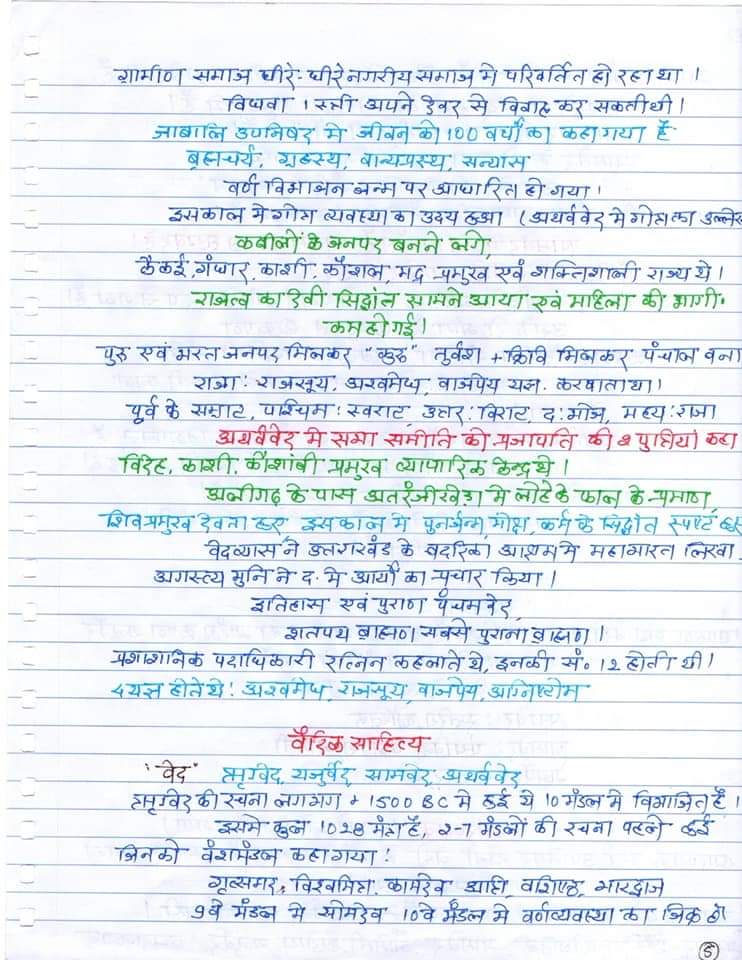 ग्रामीण समाज धीरे-धीरे नगरीय समाज मे परिवर्तित हो रहा था ।
विधवा । स्त्री अपने देवर से विवाह कर सकती थी ।
जाबालि उपनिषद मे जीवन को 100 वर्षों का कहा गया है
ब्रह्मचर्य, गृहस्थ, वान्यप्रस्थ, सन्यास
वर्ण विभाजन जन्म पर आधारित हो गया ।
इस काल मे गोत्र व्यवस्था का उदय हुआ (अथर्ववेद मे गोत्र का उल्लेख
कबीलों के जनपद बनने लगे,
कैकई, गंधार, काशी, कौशल, मद्र प्रमुख एवं शक्तिशाली राज्य थे ।
राजत्व का दैवी सिद्धांत सामने आया एवं महिला की भागी.
कम हो गई ।
पुरु एवं भरत जनपद मिलकर "कुरु" तुर्वश + क्रिवि मिलकर पंचाल बना
राजा: राजसूय, अश्वमेध, वाजपेय यज्ञ. करवाता था ।
पूर्व के सम्राट, पश्चिम: स्वराट, उत्तर: विराट, द: भोज, मध्य: राजा
अथर्ववेद मे सभा समीति को प्रजापति की 2 पुत्रियां कहा
विदेह, काशी, कौशांबी प्रमुख व्यापारिक केन्द्र थे ।
अलीगढ के पास अतरंजीखेडा मे लोहे के फाल के प्रमाण,
शिव प्रमुख देवता हुए, इस काल मे पुनर्जन्म, मोक्ष, कर्म के सिद्धांत स्पष्ट हुए
वेदव्यास ने उत्तराखंड के बदरिका आश्रम मे महाभारत लिखा.
अगस्त्य मुनि ने द. मे आर्यों का प्रचार किया ।
इतिहास एवं पुराण पंचम वेद,
शतपथ ब्राह्मण सबसे पुराना ब्राह्मण ।
प्रशाशनिक पदाधिकारी रत्निन कहलाते थे, इनकी सं॰ 12 होती थी ।
4 यज्ञ होते थे: अश्वमेध, राजसूय, वाजपेय, अग्निष्टोम
वैदिक साहित्य
"वेद" ऋग्वेद, यजुर्वेद, सामवेद, अथर्ववेद
ऋग्वेद की रचना लगभग 1500 BC मे हुई ये 10 मंडल मे विभाजित है ।
इसमे कुल 1028 मंत्र है, 2-7 मंडलों की रचना पहले हुई
जिनको वंशमंडल कहा गया:
गृत्समद, विश्वामित्र, कामदेव, अत्रि, वशिष्ठ, भारद्वाज
9वे मंडल मे सोमदेव 10वे मंडल मे वर्णव्यवस्था का जिक्र
5